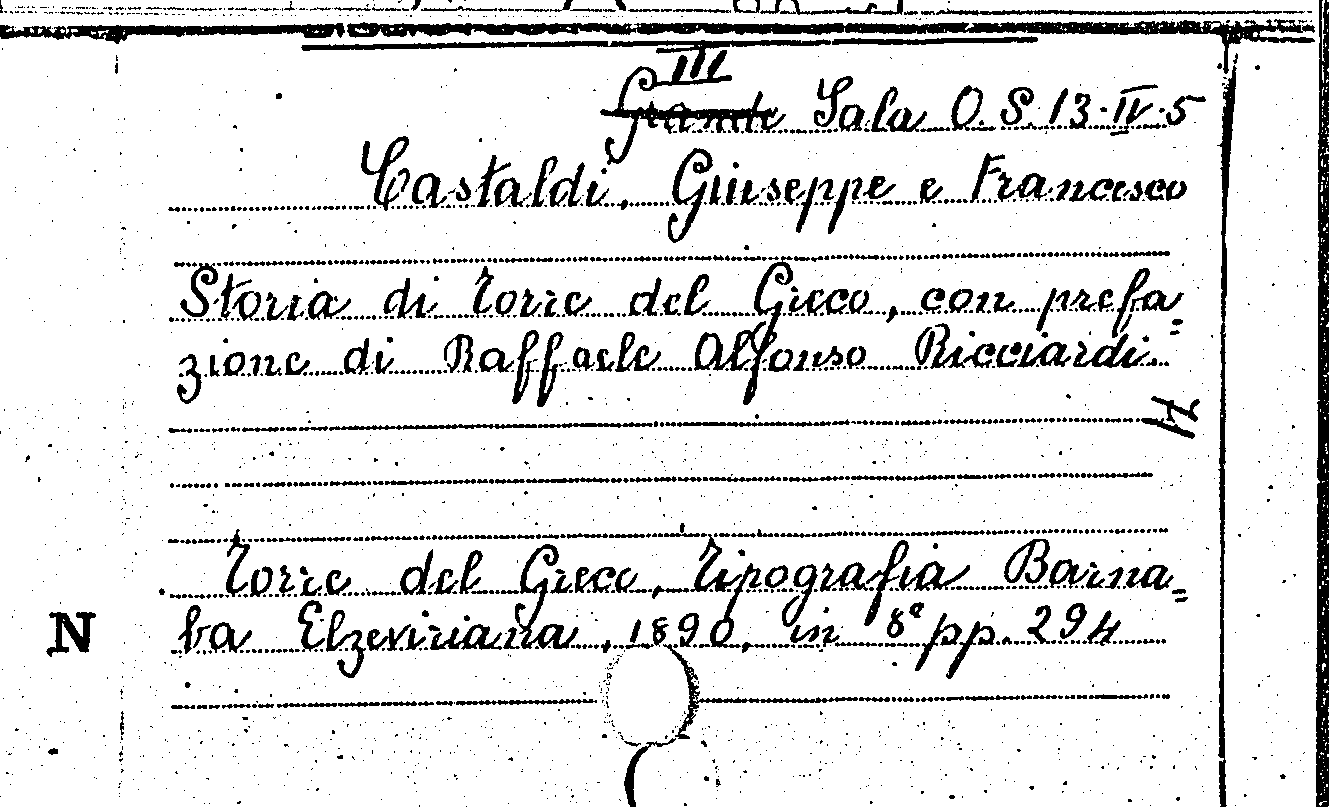 III
Grande Sala O. S. 13·IV·5
Castaldi, Giuseppe e Francesco
Storia di Torre del Greco, con prefa=
zione di Raffaele Alfonso Ricciardi.
Torre del Greco, Tipografia Barna=
N ba Elzeviriana, 1890, in 8° pp. 294